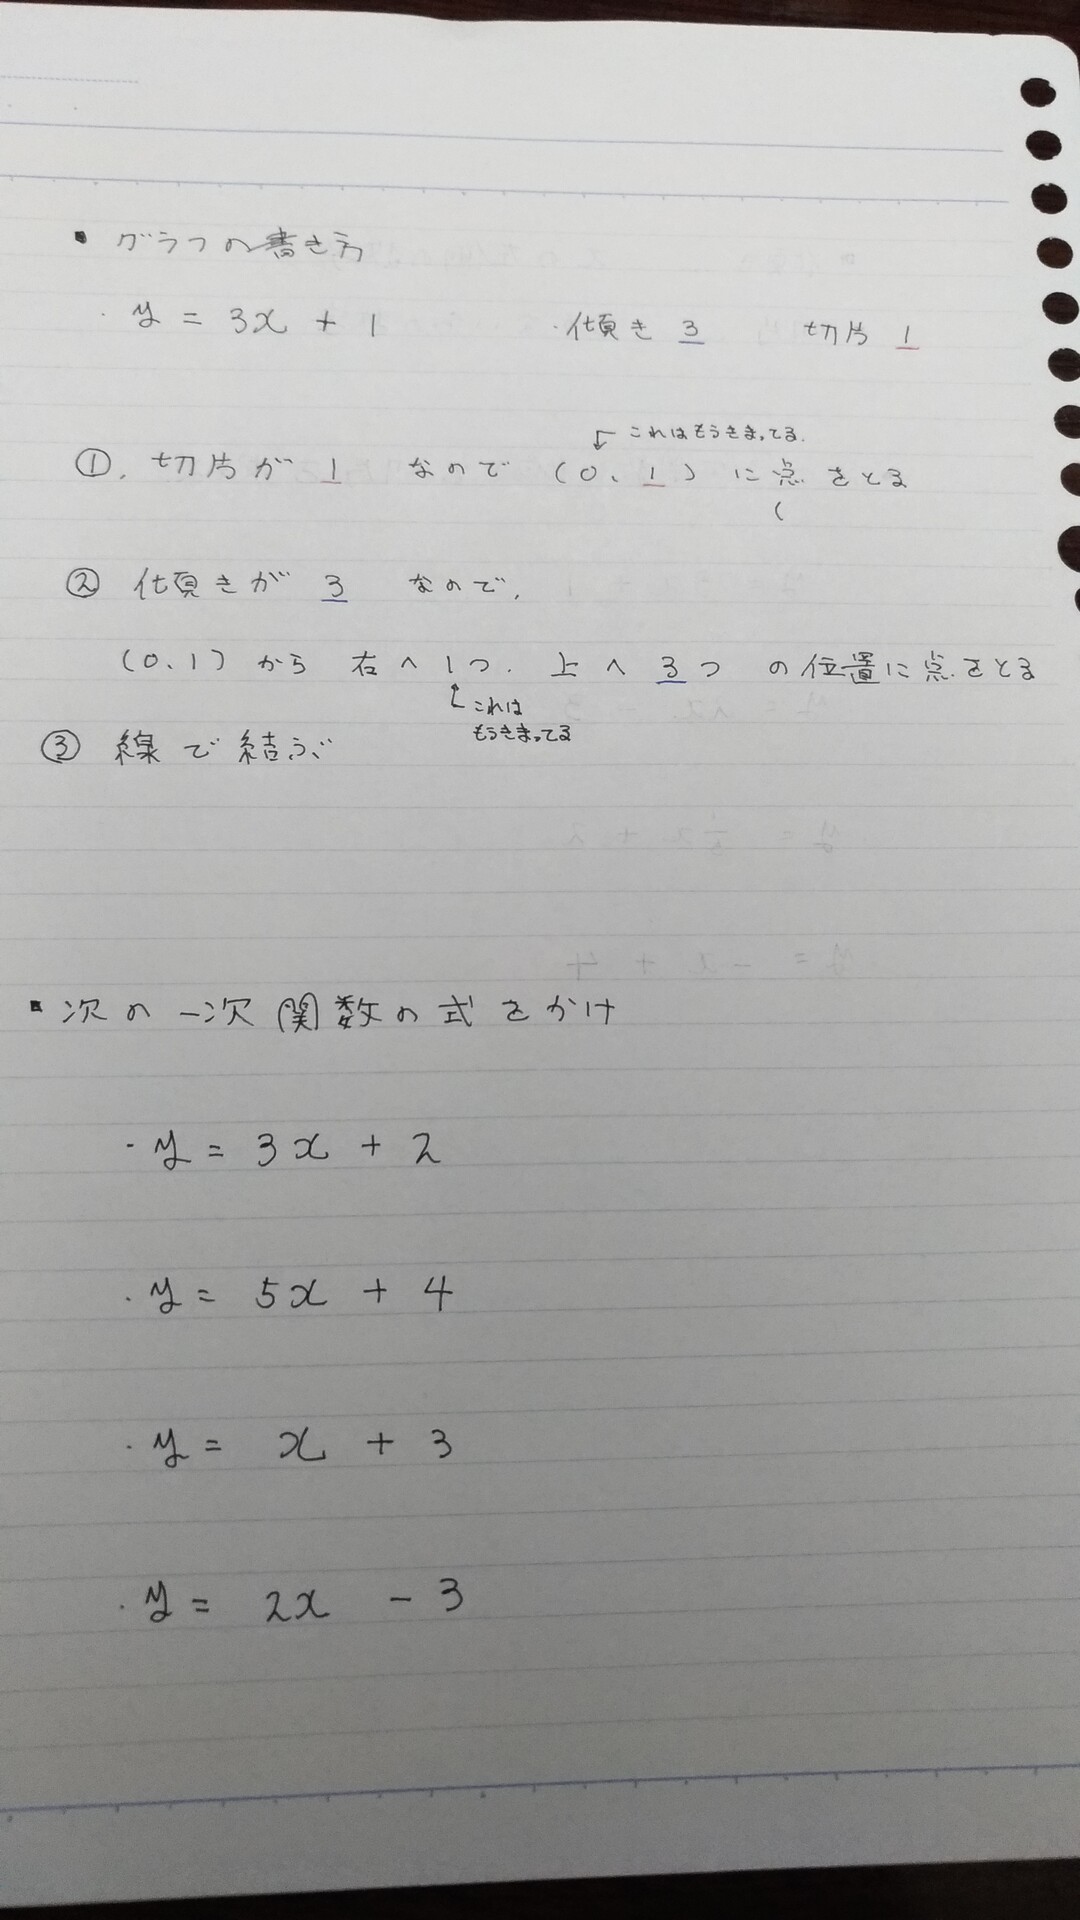 ▪ グラフの書き方
・y = 3x + 1 ・傾き 3 切片 1
これはもうきまってる.
①. 切片が 1 なので (0、1) に点をとる
(
② 傾きが 3 なので,
(0、1) から 右へ 1つ. 上へ 3つ の位置に点をとる
これは
もうきまってる
③ 線で結ぶ
▪ 次の一次関数の式をかけ
・y = 3x + 2
・y = 5x + 4
・y = x + 3
・y = 2x - 3